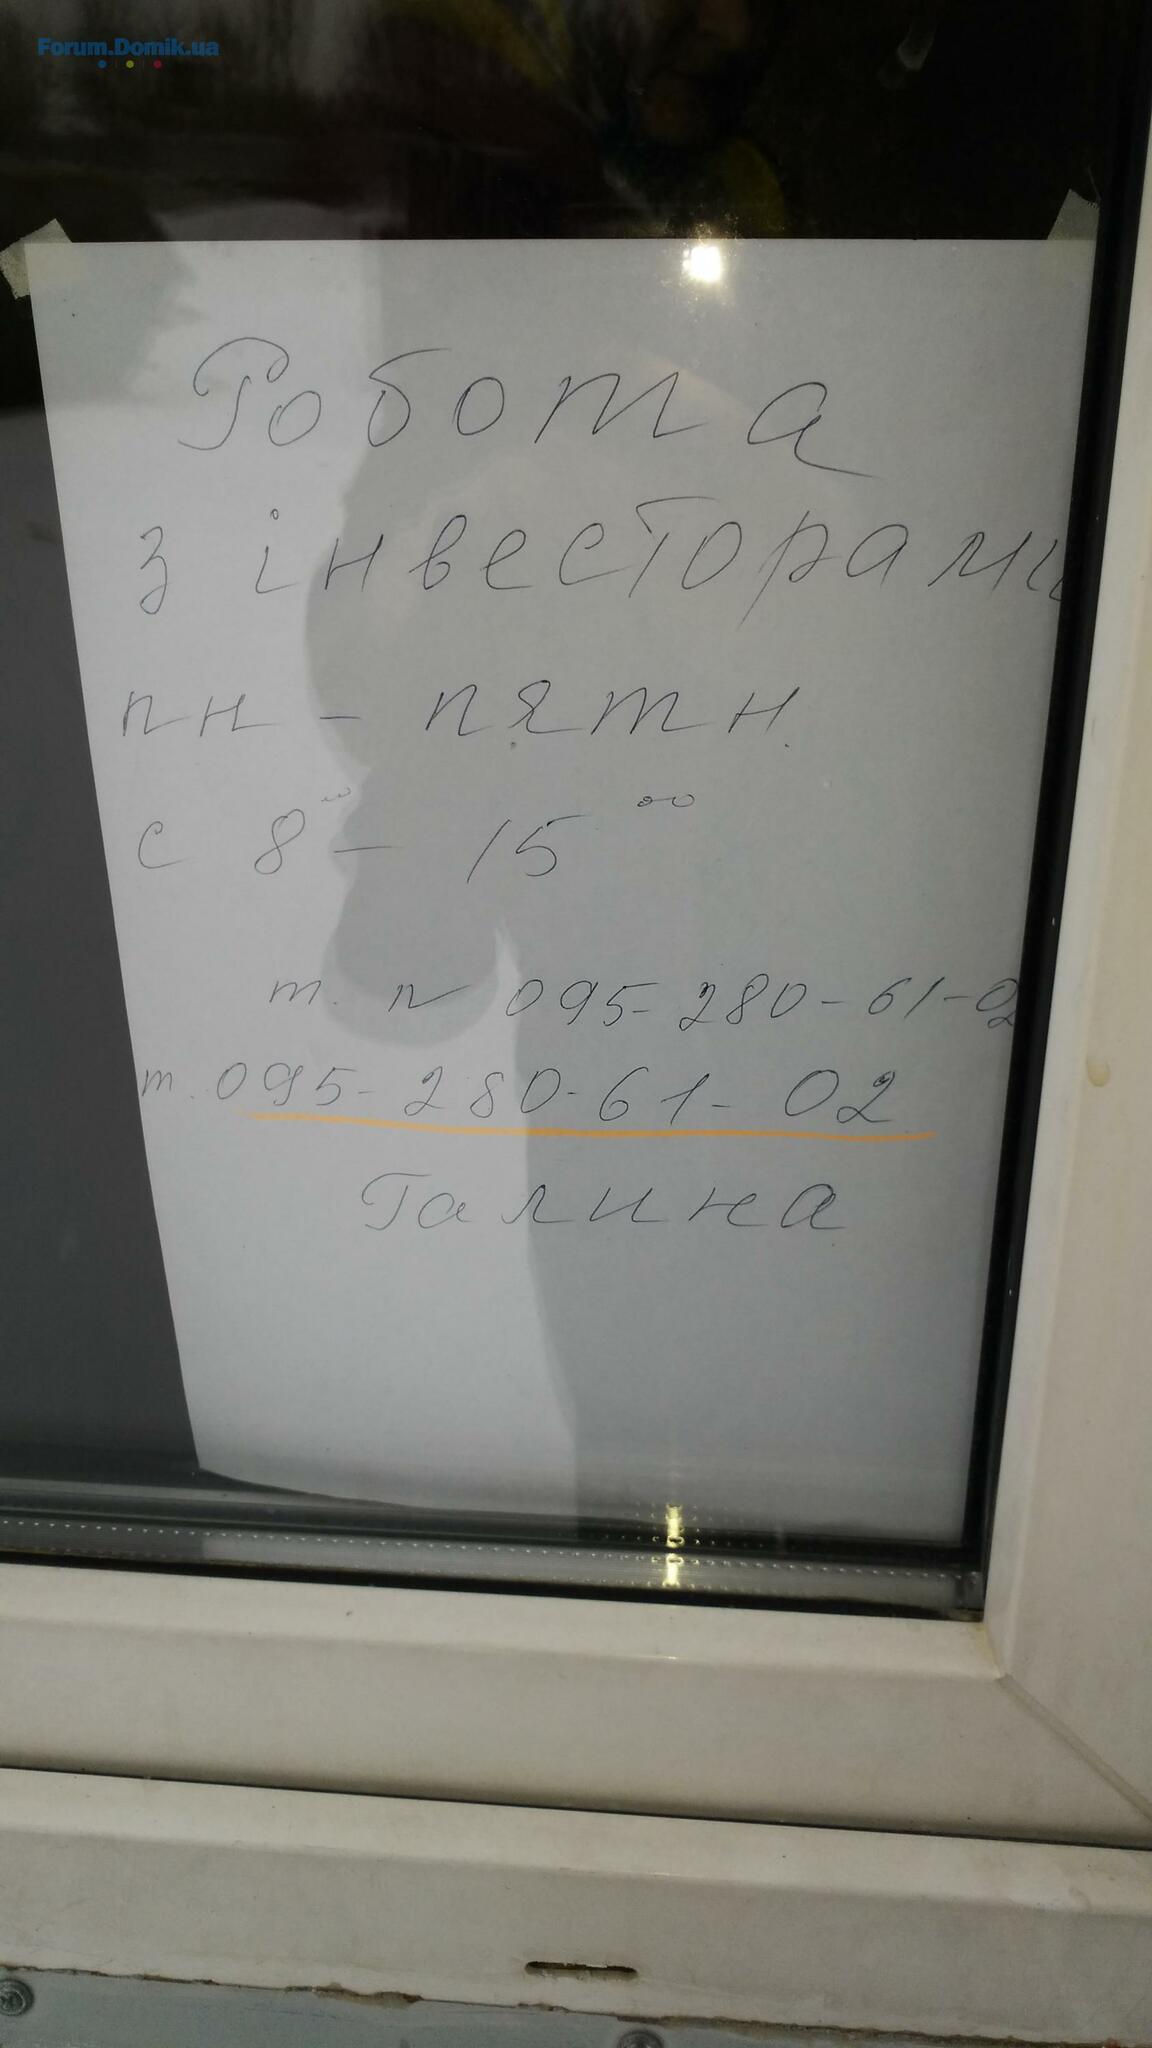 Forum.Domik.ua
Робота
з інвесторами
пн - пятн.
с 8⁰⁰ - 15⁰⁰
т. n 095-280-61-02
т. 095-280-61-02
Галина